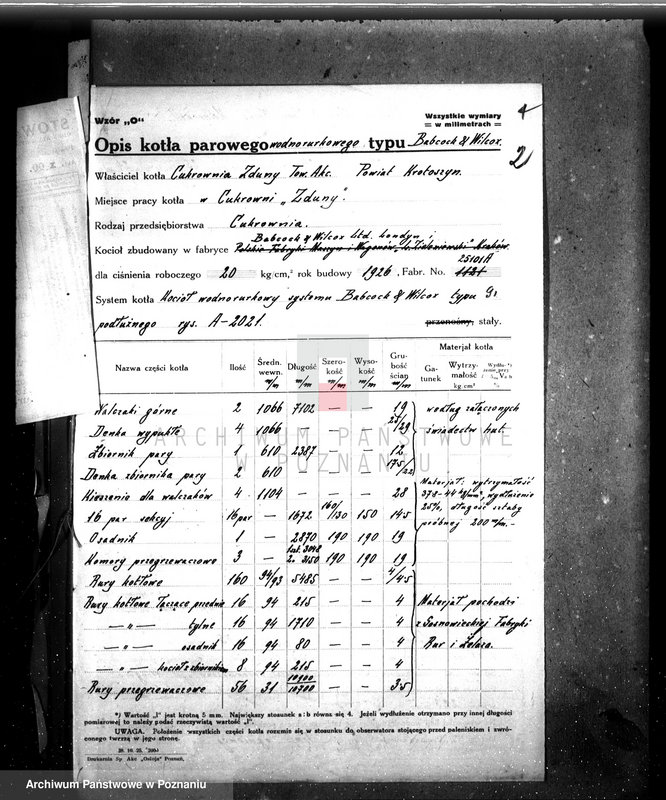 Wzór „O"
Wszystkie wymiary
w milimetrach
4
2
Opis kotła parowego wodnorurkowego typu Babcock & Wilcox.
Właściciel kotła Cukrownia Zduny Tow. Akc. Powiat Krotoszyn.
Miejsce pracy kotła w Cukrowni „Zduny".
Rodzaj przedsiębiorstwa Cukrownia.
Babcock & Wilcox Ltd. Londyn i
Kocioł zbudowany w fabryce Polskie Fabryki Maszyn i Wagonów „L. Zieleniewski" Kraków
25101A
dla ciśnienia roboczego 20 kg/cm,² rok budowy 1926, Fabr. No. 1121
System kotła Kocioł wodnorurkowy systemu Babcock & Wilcox typu
podłużnego rys. A-2021. przenośny, stały.
Nazwa części kotła Ilość Średn. wewn. m/m Długość m/m Szerokość m/m Wysokość m/m Grubość ścian m/m Materjał kotła Gatunek Wytrzymałość kg. cm²
Walczaki górne 2 1066 7102 — — 19 według załączonych
Denka wypukłe 4 1066 — — — 25/29 świadectw hut.
Zbiornik pary 1 610 2387 — — 12
Denka zbiornika pary 2 610 — — — 17.5/22
Kieszenie dla walczaków 4 1104 — — — 28 Materjał: wytrzymałość
16 par sekcyj 16 par — 1672 160/130 150 14.5 25%, długość sztaby
Osadnik 1 — 2870 190 190 19 próbnej 200 m/m.-
Komory przegrzewaczowe 3 — 1szt. 3098 2. 3150 190 190 19
Rury kotłowe 160 94/93 5485 — — 4/4.5
Rury kotłowe łączące przednie 16 94 215 — — 4 Materjał pochodzi
— „ — tylne 16 94 1710 — — 4 z Sosnowieckiej Fabryki
— „ — osadnik 16 94 80 — — 4 Rur i Żelaza.
— „ — kocioł z zbiornikiem 8 94 215 — — 4
Rury przegrzewaczowe 56 31 10900/10700 — — 3.5
*) Wartość „l" jest krotną 5 mm. Największy stosunek a:b równa się 4. Jeżeli wydłużenie otrzymano przy innej długości
pomiarowej to należy podać rzeczywistą wartość „l".
UWAGA. Położenie wszystkich części kotła rozumie się w stosunku do obserwatora stojącego przed paleniskiem i zwróconego twarzą w jego stronę.
28. 10. 25. 200.
Drukarnia Sp. Akc „Ostoja" Poznań,
ARCHIWUM PAŃSTWOWE
W POZNANIU
Archiwum Państwowe w Poznaniu